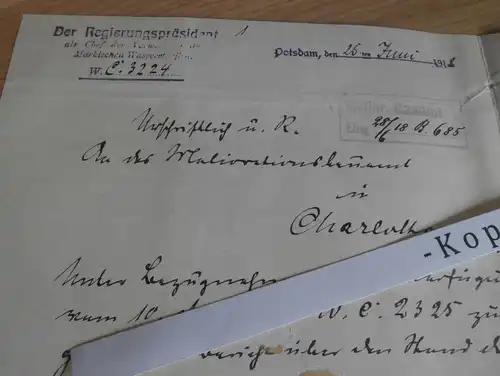 Der Regierungspräsident 1
als Chef der
Märkischen Wasserstr.
W. C. 3224
Potsdam, den 26 ten Juni 1918
Eing. 28/6 18 B. 685
Urschriftlich u. R.
An das Meliorationsbauamt
in
Charlotte
-Kop
Unter Bezugnahme
vom 10. W. C. 2325 zu
über den Stand de